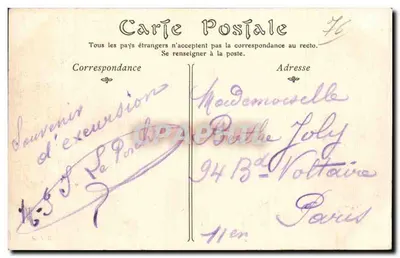 Carte Postale
76
Tous les pays étrangers n'acceptent pas la correspondance au recto.
Se renseigner à la poste.
Correspondance
Adresse
Souvenir
d'excursion
Mademoiselle
Berthe Joly
94 Bd Voltaire
Paris
11em